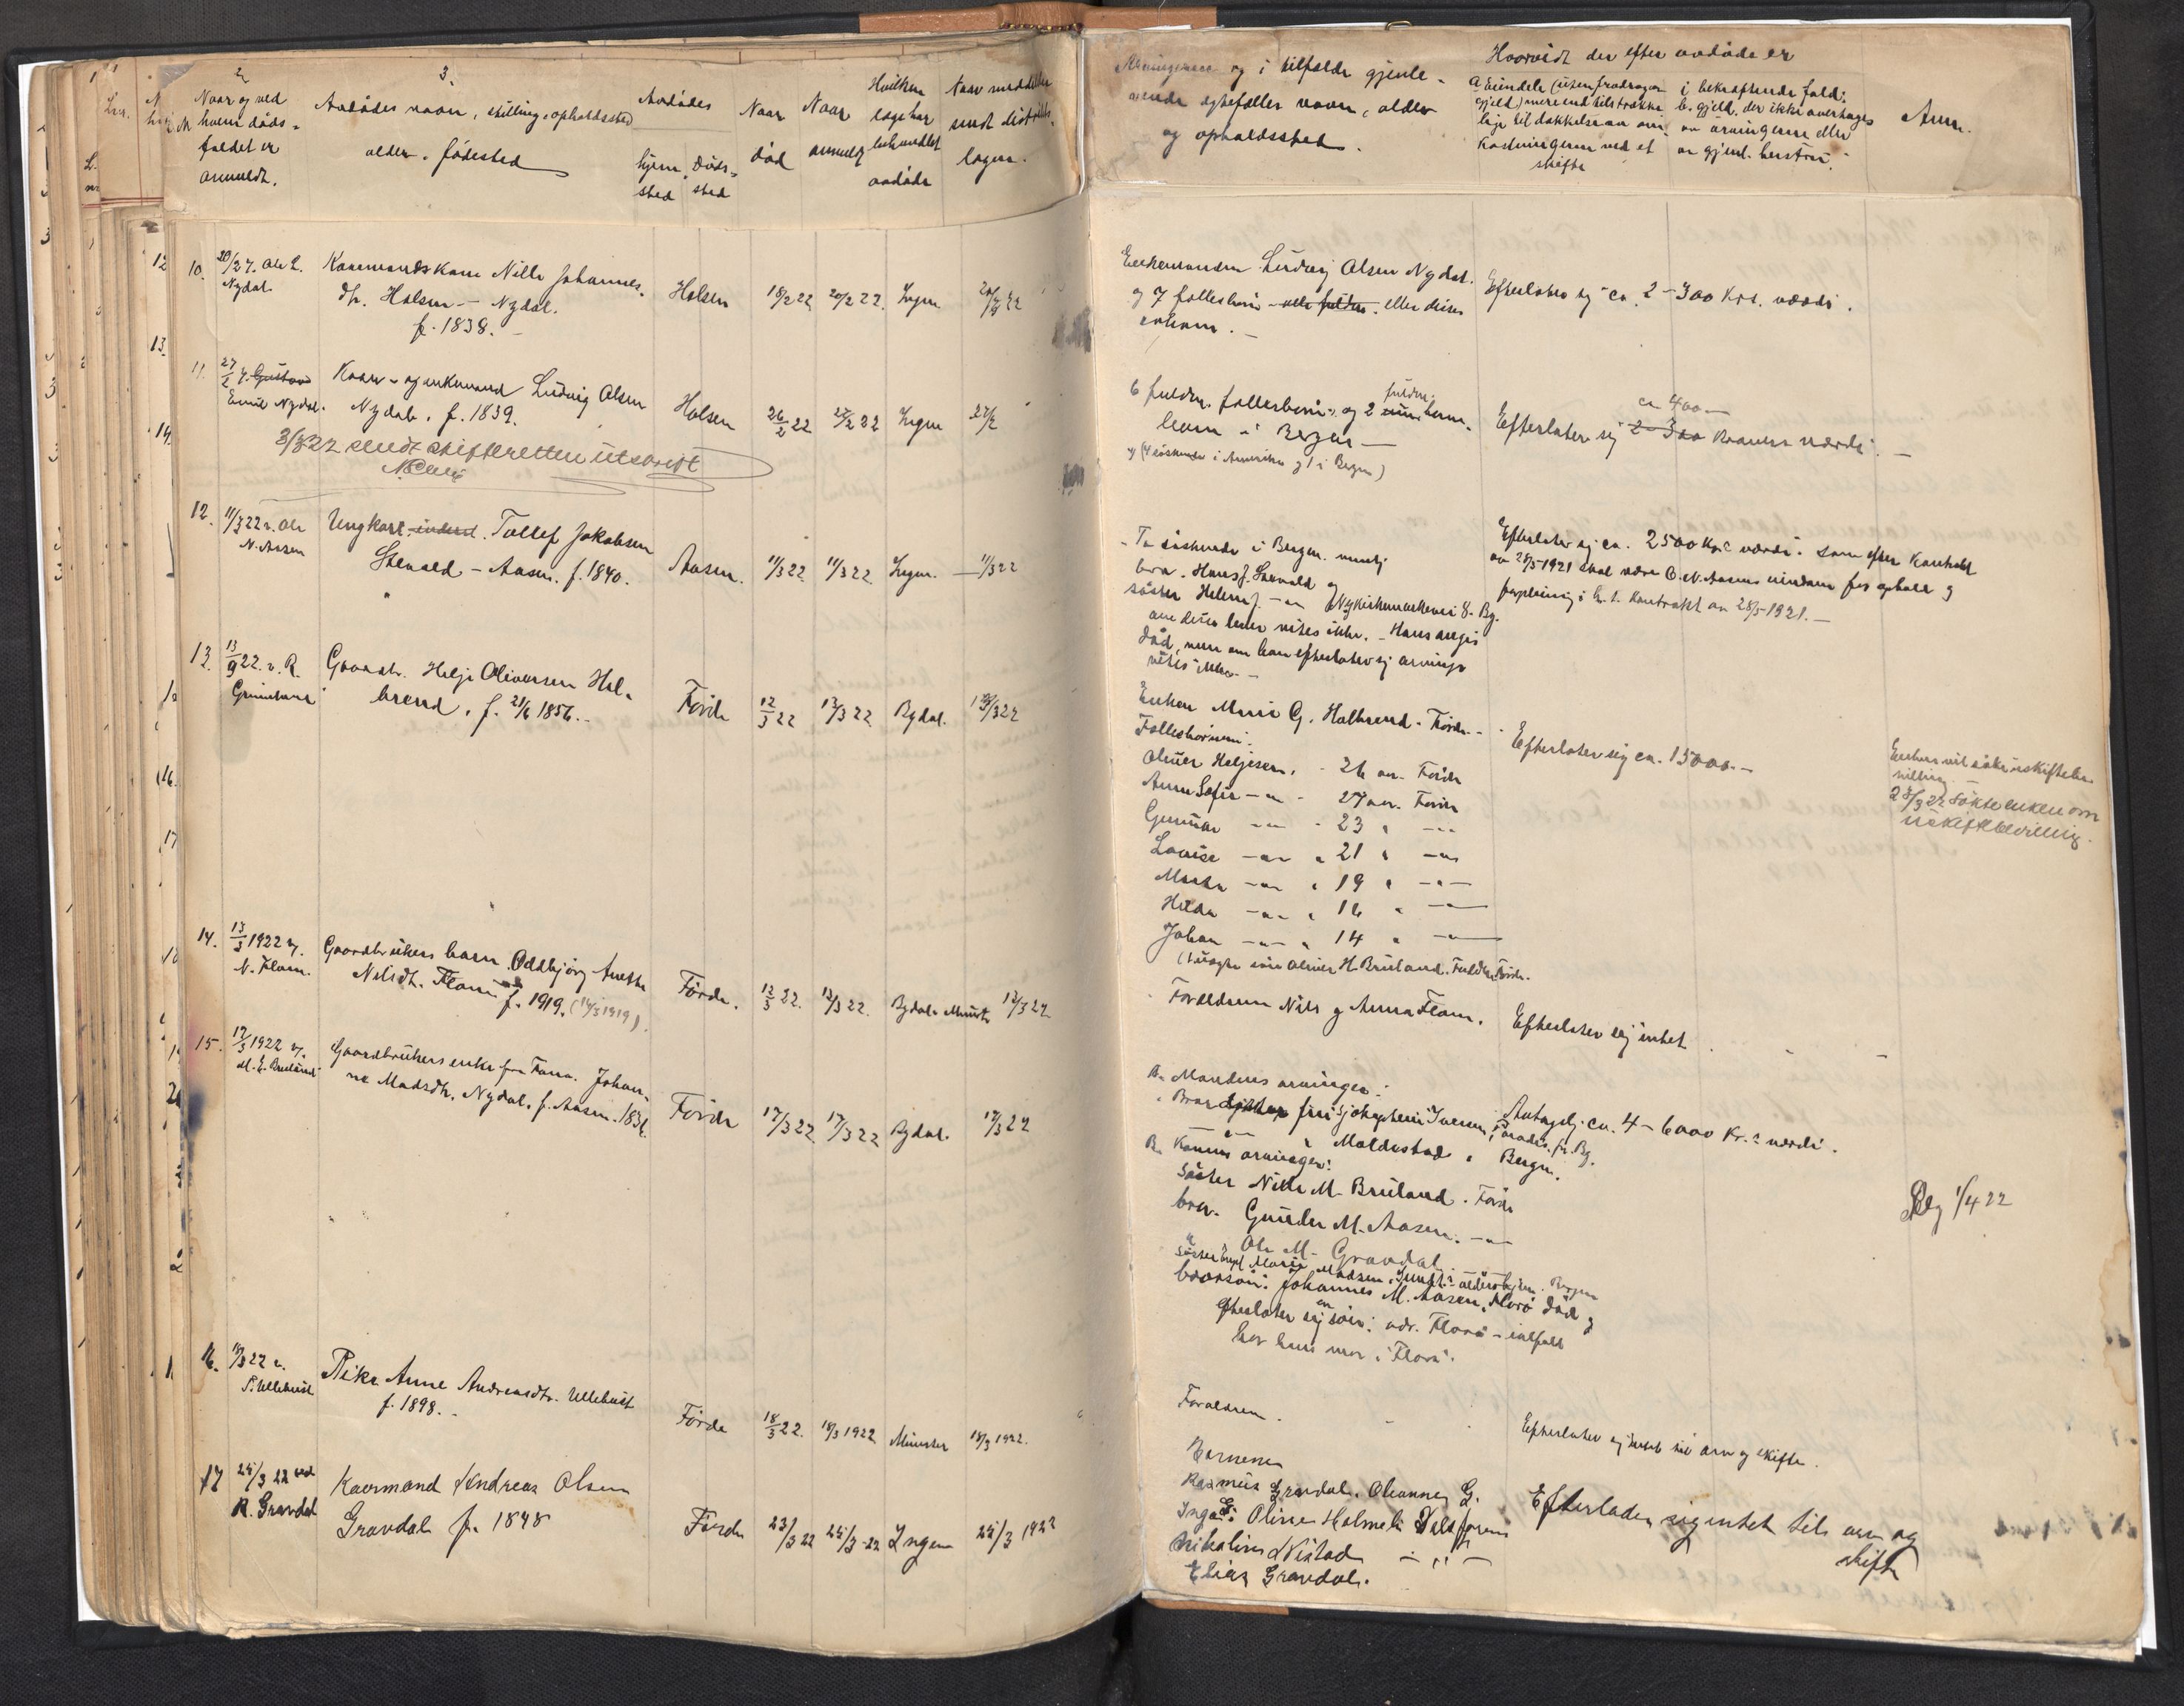 2.
Naar og ved
hvem døds-
faldet er
anmeldt.
3.
Avdødes navn, stilling, opholdssted
alder. fødested
Avdødes
hjem-
sted
døds-
sted
Naar
død
Naar
anmeldt
Hvilken
læge har
behandlet
avdøde
Naar meddelelse
sendt distrikts-
lægen.
Arvingernes og i tilfælde gjenle-
vende egtefælles navn, alder
og opholdssted.
Hvorvidt der efter avdøde er
a. Eiendele (uten fradrag av
gjeld) mere end tilstrække-
lige til dækkelse av om-
kostningerne ved et
skifte
i bekræftende fald:
b. gjeld, der ikke overtages
av arvingerne eller
av gjenl.
Anm.
10. 20/2 v. Ole L.
Nydal.
Kaarmandskone Nille Johannes-
dtr. Holsen - Nydal.
f. 1838. -
Holsen 18/2 22 20/2 22. Ingen 20/2 22
Enkemanden Ludvig Olsen Nydal.
og 7 fællesbørn - alle fuldm. eller disses
Efterlater sig ca. 2-300 Krs. værdi.
11. 27/2 v. Gustav
Emil Nydal.
Kaar- og enkemand Ludvig Olsen
Nydal, f. 1839.
Holsen 26/2 22 27/2 22 Ingen 27/2
3/3 22 sendt skifteretten utskrift
6 fuldm. fællesbørn, og 2 fuldm. barne-
barn i Bergen -
(4 søskende i Amerika og 1 i Bergen)
ca 400 -
Efterlater sig 2-300 Kroners værdi. -
12. 11/3 22 v. Ole
N. Aasen
Ungkarl, inderst. Tollef Jakobsen
- Aasen. f. 1840.
Aasen. 11/3 22 11/3 22 Ingen. - 11/3 22
- To søskende i Bergen. nemlig
bror. Hans J. og
søster Helene J. -"- Nykirkealmenning 8. Bg.
om disse lever vites ikke. - Hans
død, men om han efterlater sig arvinger
vites ikke. -
Efterlater sig ca. 2500 Kr.s værdi. som efter Kontrakt
av 28/5-1921 skal være O. N. Aasens eiendom for ophold og
forpleining i h. t. Kontrakt av 28/5-1921. -
13. 13/9 22. v. R.
Gaardbr. Helje Oliversen Hal-
brend, f. 21/6 1856. -
Førde 12/3 22 13/3 22 Bydal. 13/3 22
Enken Marie G. Halbrend. Førde. -
Fællesbørnene:
Oliver Heljesen, - 26 aar. Førde
Anna Sofie -"- - 27 aar. Førde
Gunnar -"- - 23 " -"-
Lovise -"- " 21 " -"-
Marta -"- " 19 " -"-
Hilda -"- " 16 " -"-
Johan -"- " 14 " -"-
Efterlater sig ca. 15000. -
Enken vil søke uskiftebe-
villing. -
28/3 22 søkte enken om
uskiftebevilling.
14. 13/3 1922 v.
N. Flam.
Gaardbrukers barn Oddbjørg Anetta
Nilsdt. Flam f. 1919. (14/3 1919).
Førde. 12/3 22. 13/3 22. Bydal & Munster 13/3 22
Forældrene Nils og Anna Flam. Efterlater sig intet
15. 17/3 1922 v.
M. E. Bruland
Gaardbrukers enke fra Johan-
ne Madsdtr. Nydal. f. Aasen. 1836.
Førde 17/3 22 17/3 22 Bydal. 17/3 22
A. Mandens arvinger:
" Moldestad " Bergen.
B. Konens arvinger:
Søster Nille M. Bruland. Førde
bror. Gunder M. Aasen. -"-
" Ole M. Gravdal -"-
brorsøn: Johannes M. Aasen, Florø død og
efterlater sig en søn: adr. Florø - ialfald
hos hans mor i Florø.
Antagelig ca. 4-6000 Kr.s værdi.
Blg 1/4 22
16. 18/3 22 v.
P. Ullebust
Pike Anne Andreasdtr. Ullebust
f. 1898. -
Førde 18/3 22. 18/3 1922 Munster 18/3 1922.
Forældrene.
Efterlater sig intet til arv og skifte.
17 25/3 22 ved
R. Gravdal
Kaarmand Andreas Olsen
Gravdal f. 1848
Førde 23/3 22 25/3-22 Ingen 25/3 1922
Børnene
Rasmus Gravdal. Johannes G.
Inga G. Oline Holmelid
Nikoline -"-
Elias Gravdal.
Efterlader sig intet til arv og
skifte